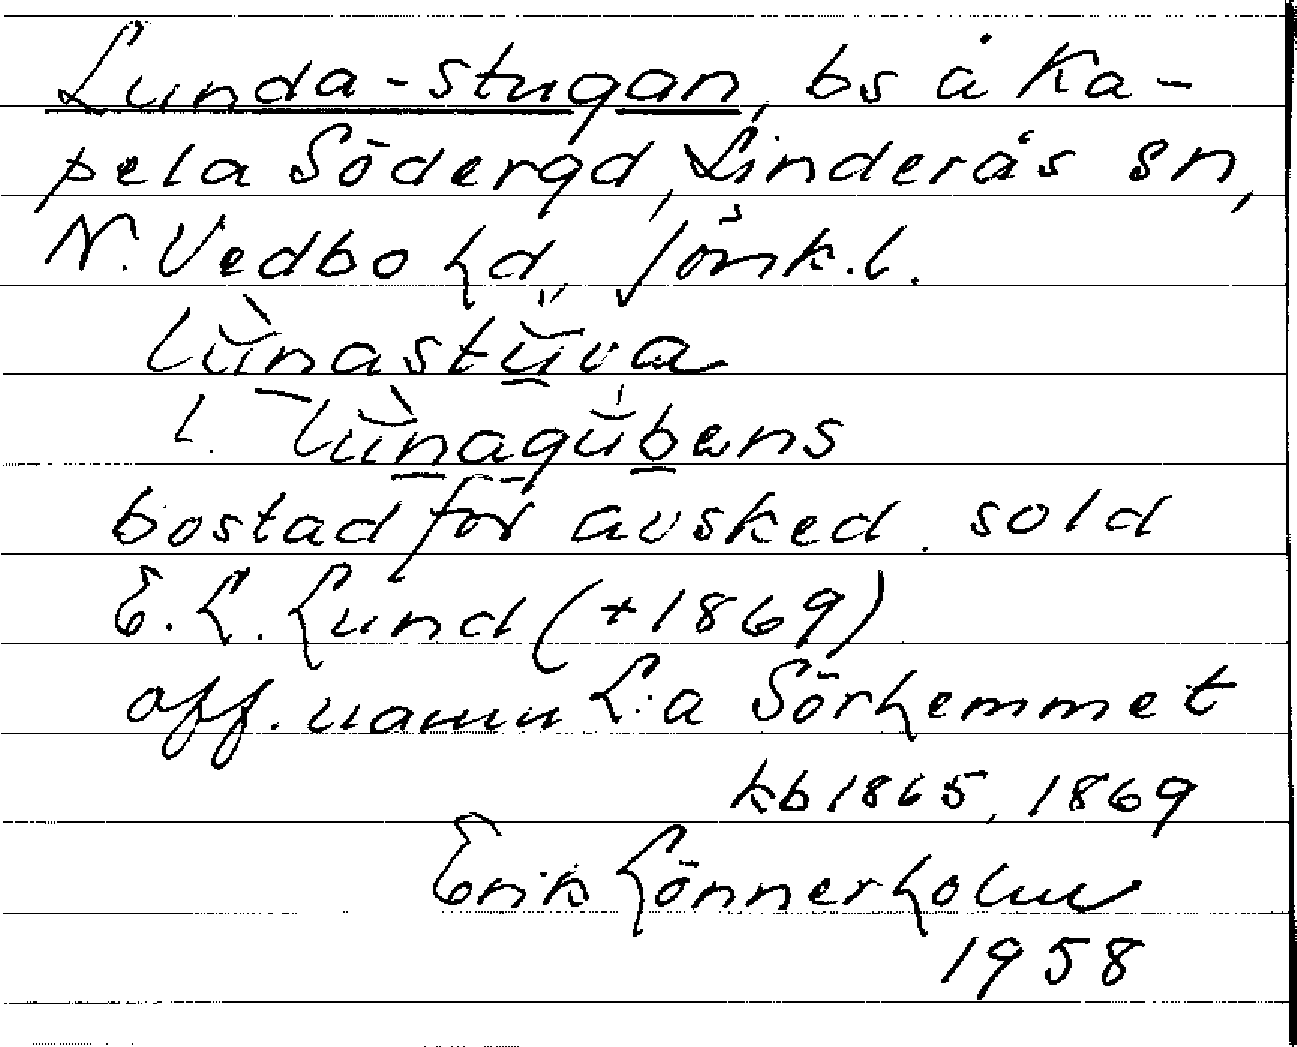 Lunda-stugan, bs å Ka-
pela Södergd, Linderås sn,
N. Vedbo hd, Jönk. l.
lùnastuva
l. lùnagubens
bostad för avsked. sold
E. L. Lund (+1869)
off. namn L:a Sörhemmet
kb 1865, 1869
Erik Lönnerholm
1958